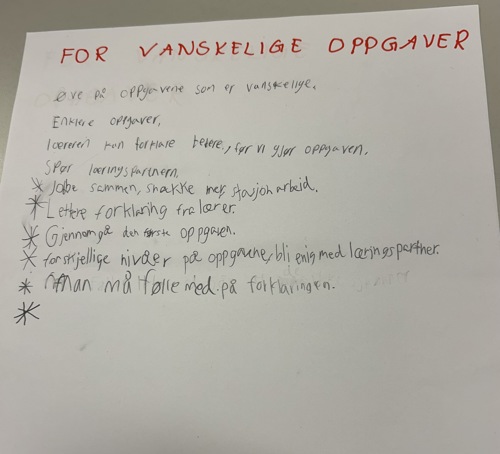 FOR VANSKELIGE OPPGAVER
Øve på oppgavene som er vanskelige.
Enklere oppgaver.
læreren kan forklare bedere, før vi gjør oppgaven.
Spør læringspartneren.
* jobbe sammen, snakke mer, stasjonarbeid.
* Lettere forklaring fra lærer.
* Gjennomgå den første oppgaven.
* forskjellige nivåer på oppgavene, bli enig med læringspartner.
* Man må følle med på forklaringen.
*